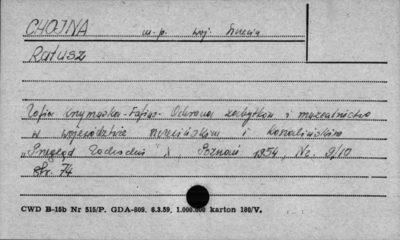 CHOJNA m-p. woj. Szczecin
Ratusz
Zofia Krzymuska-Fafius - Ochrona zabytków i muzealnictwo
w województwie szczecińskim i koszalińskim
"Przegląd Zachodni", Poznań 1954, Nr. 9/10
Str. 74
CWD B-15b Nr 515/P. GDA-809. 6.3.59. 1.000.000 karton 180/V.